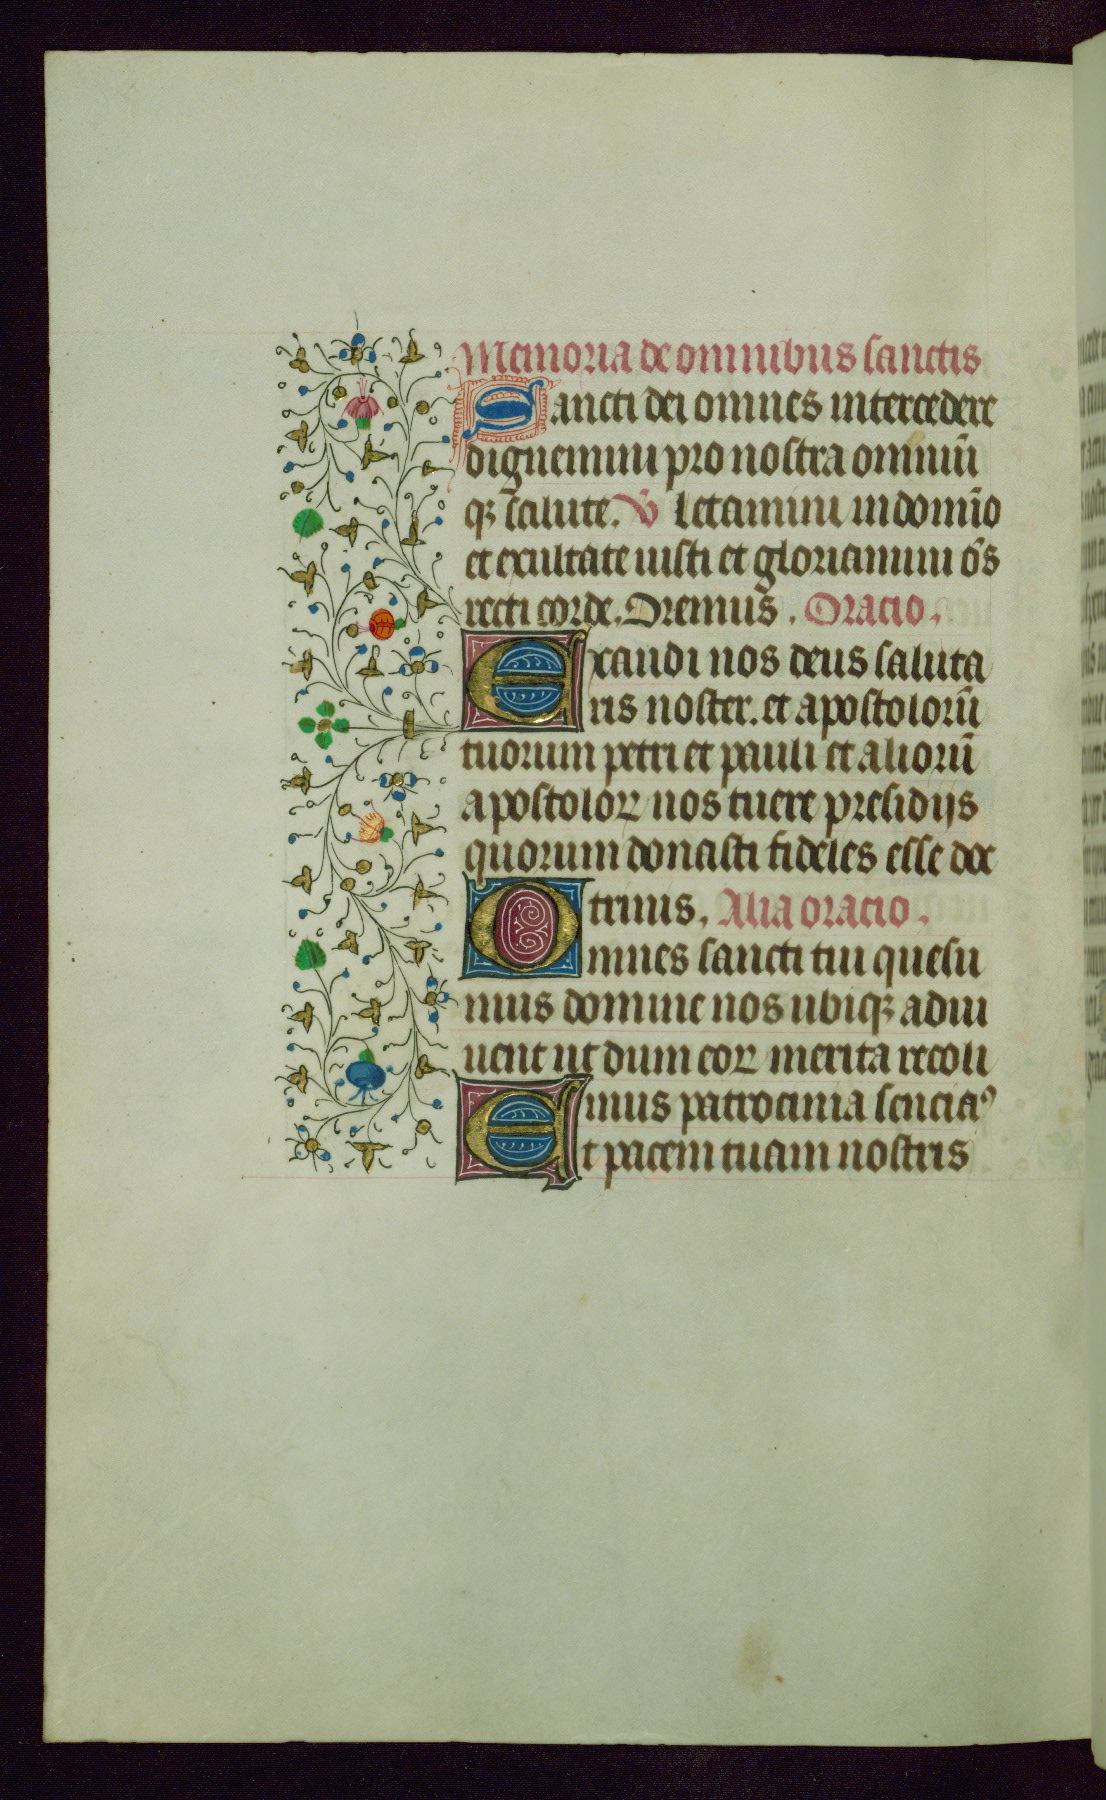 Memoria de omnibus sanctis
Sancti dei omnes intercedere
dignemini pro nostra omniū
qꝫ salute. ℣ Letamini in domīo
et exultate iusti et gloriamini ōs
recti corde. Oremus. Oracio.
Exaudi nos deus saluta
ris noster. et apostolorū
tuorum petri et pauli et aliorū
apostoloꝝ nos tuere presidijs
quorum donasti fideles esse doc
trinis. Alia oracio.
Omnes sancti tui quesu
mus domine nos ubiqꝫ adiu
uent ut dum eoꝝ merita recoli
mus patrocinia senciaꝰ
Et pacem tuam nostris